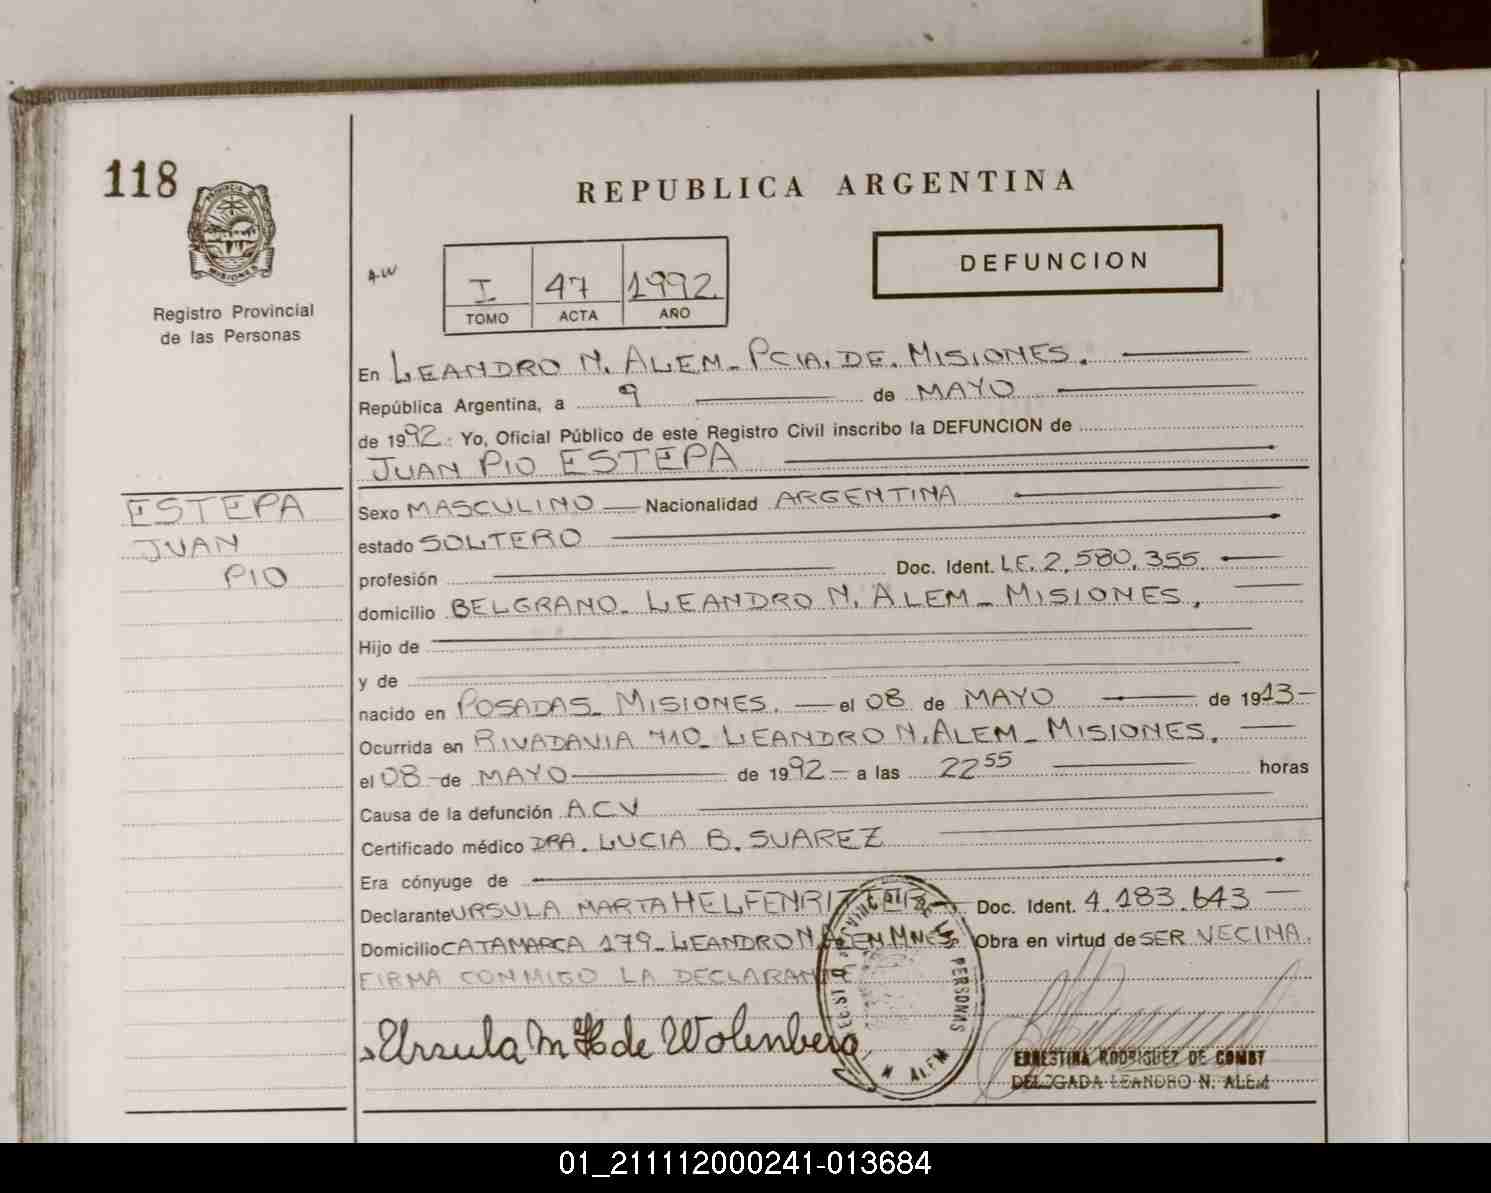 118
REPUBLICA ARGENTINA
PROVINCIA DE
MISIONES
Registro Provincial
de las Personas
A.W
I 47 1992
TOMO ACTA AÑO
DEFUNCION
En LEANDRO N. ALEM - PCIA. DE. MISIONES.
República Argentina, a 9 de MAYO
de 1992.- Yo, Oficial Público de este Registro Civil inscribo la DEFUNCION de
JUAN PIO ESTEPA
ESTEPA
JUAN
PIO
Sexo MASCULINO Nacionalidad ARGENTINA
estado SOLTERO
profesión Doc. Ident. L.E. 2.580.355
domicilio BELGRANO - LEANDRO N. ALEM - MISIONES.
Hijo de
y de
nacido en POSADAS - MISIONES. el 08 de MAYO de 1913-
Ocurrida en RIVADAVIA 710 - LEANDRO N. ALEM - MISIONES.
el 08 - de MAYO de 1992 - a las 22 55 horas
Causa de la defunción A.C.V
Certificado médico DRA. LUCIA B. SUAREZ
Era cónyuge de
Declarante URSULA MARTA HELFENRITZER Doc. Ident. 4.183.643
Domicilio CATAMARCA 179 - LEANDRO N. ALEM Mnes. Obra en virtud de SER VECINA.
FIRMA CONMIGO LA DECLARANTE
Ursula M H de Wolenberg
PERSONAS
N. ALEM
ERNESTINA RODRIGUEZ DE COMBY
DELEGADA LEANDRO N. ALEM
01_211112000241-013684